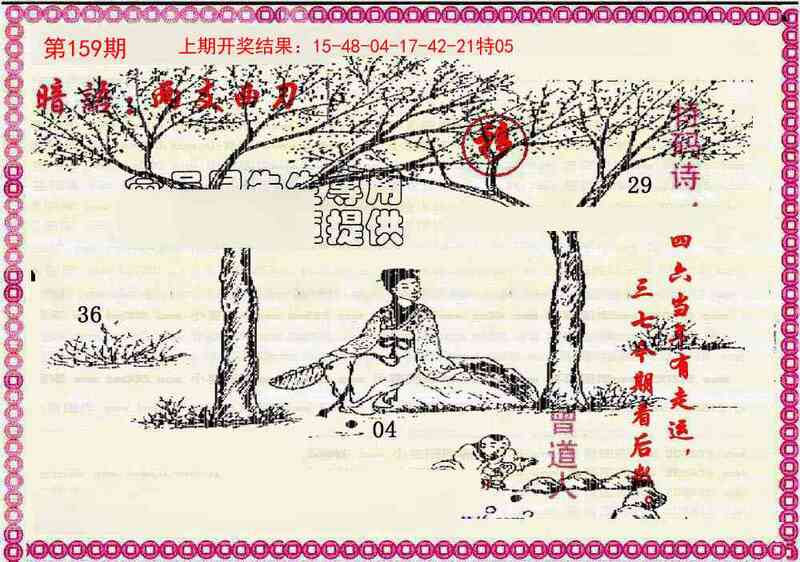 第159期
上期开奖结果：15-48-04-17-42-21特05
暗語：兩支曲刀
特码诗：
四六当年有走运，
三七今期看后数。
29
提供
36
04
曾道人